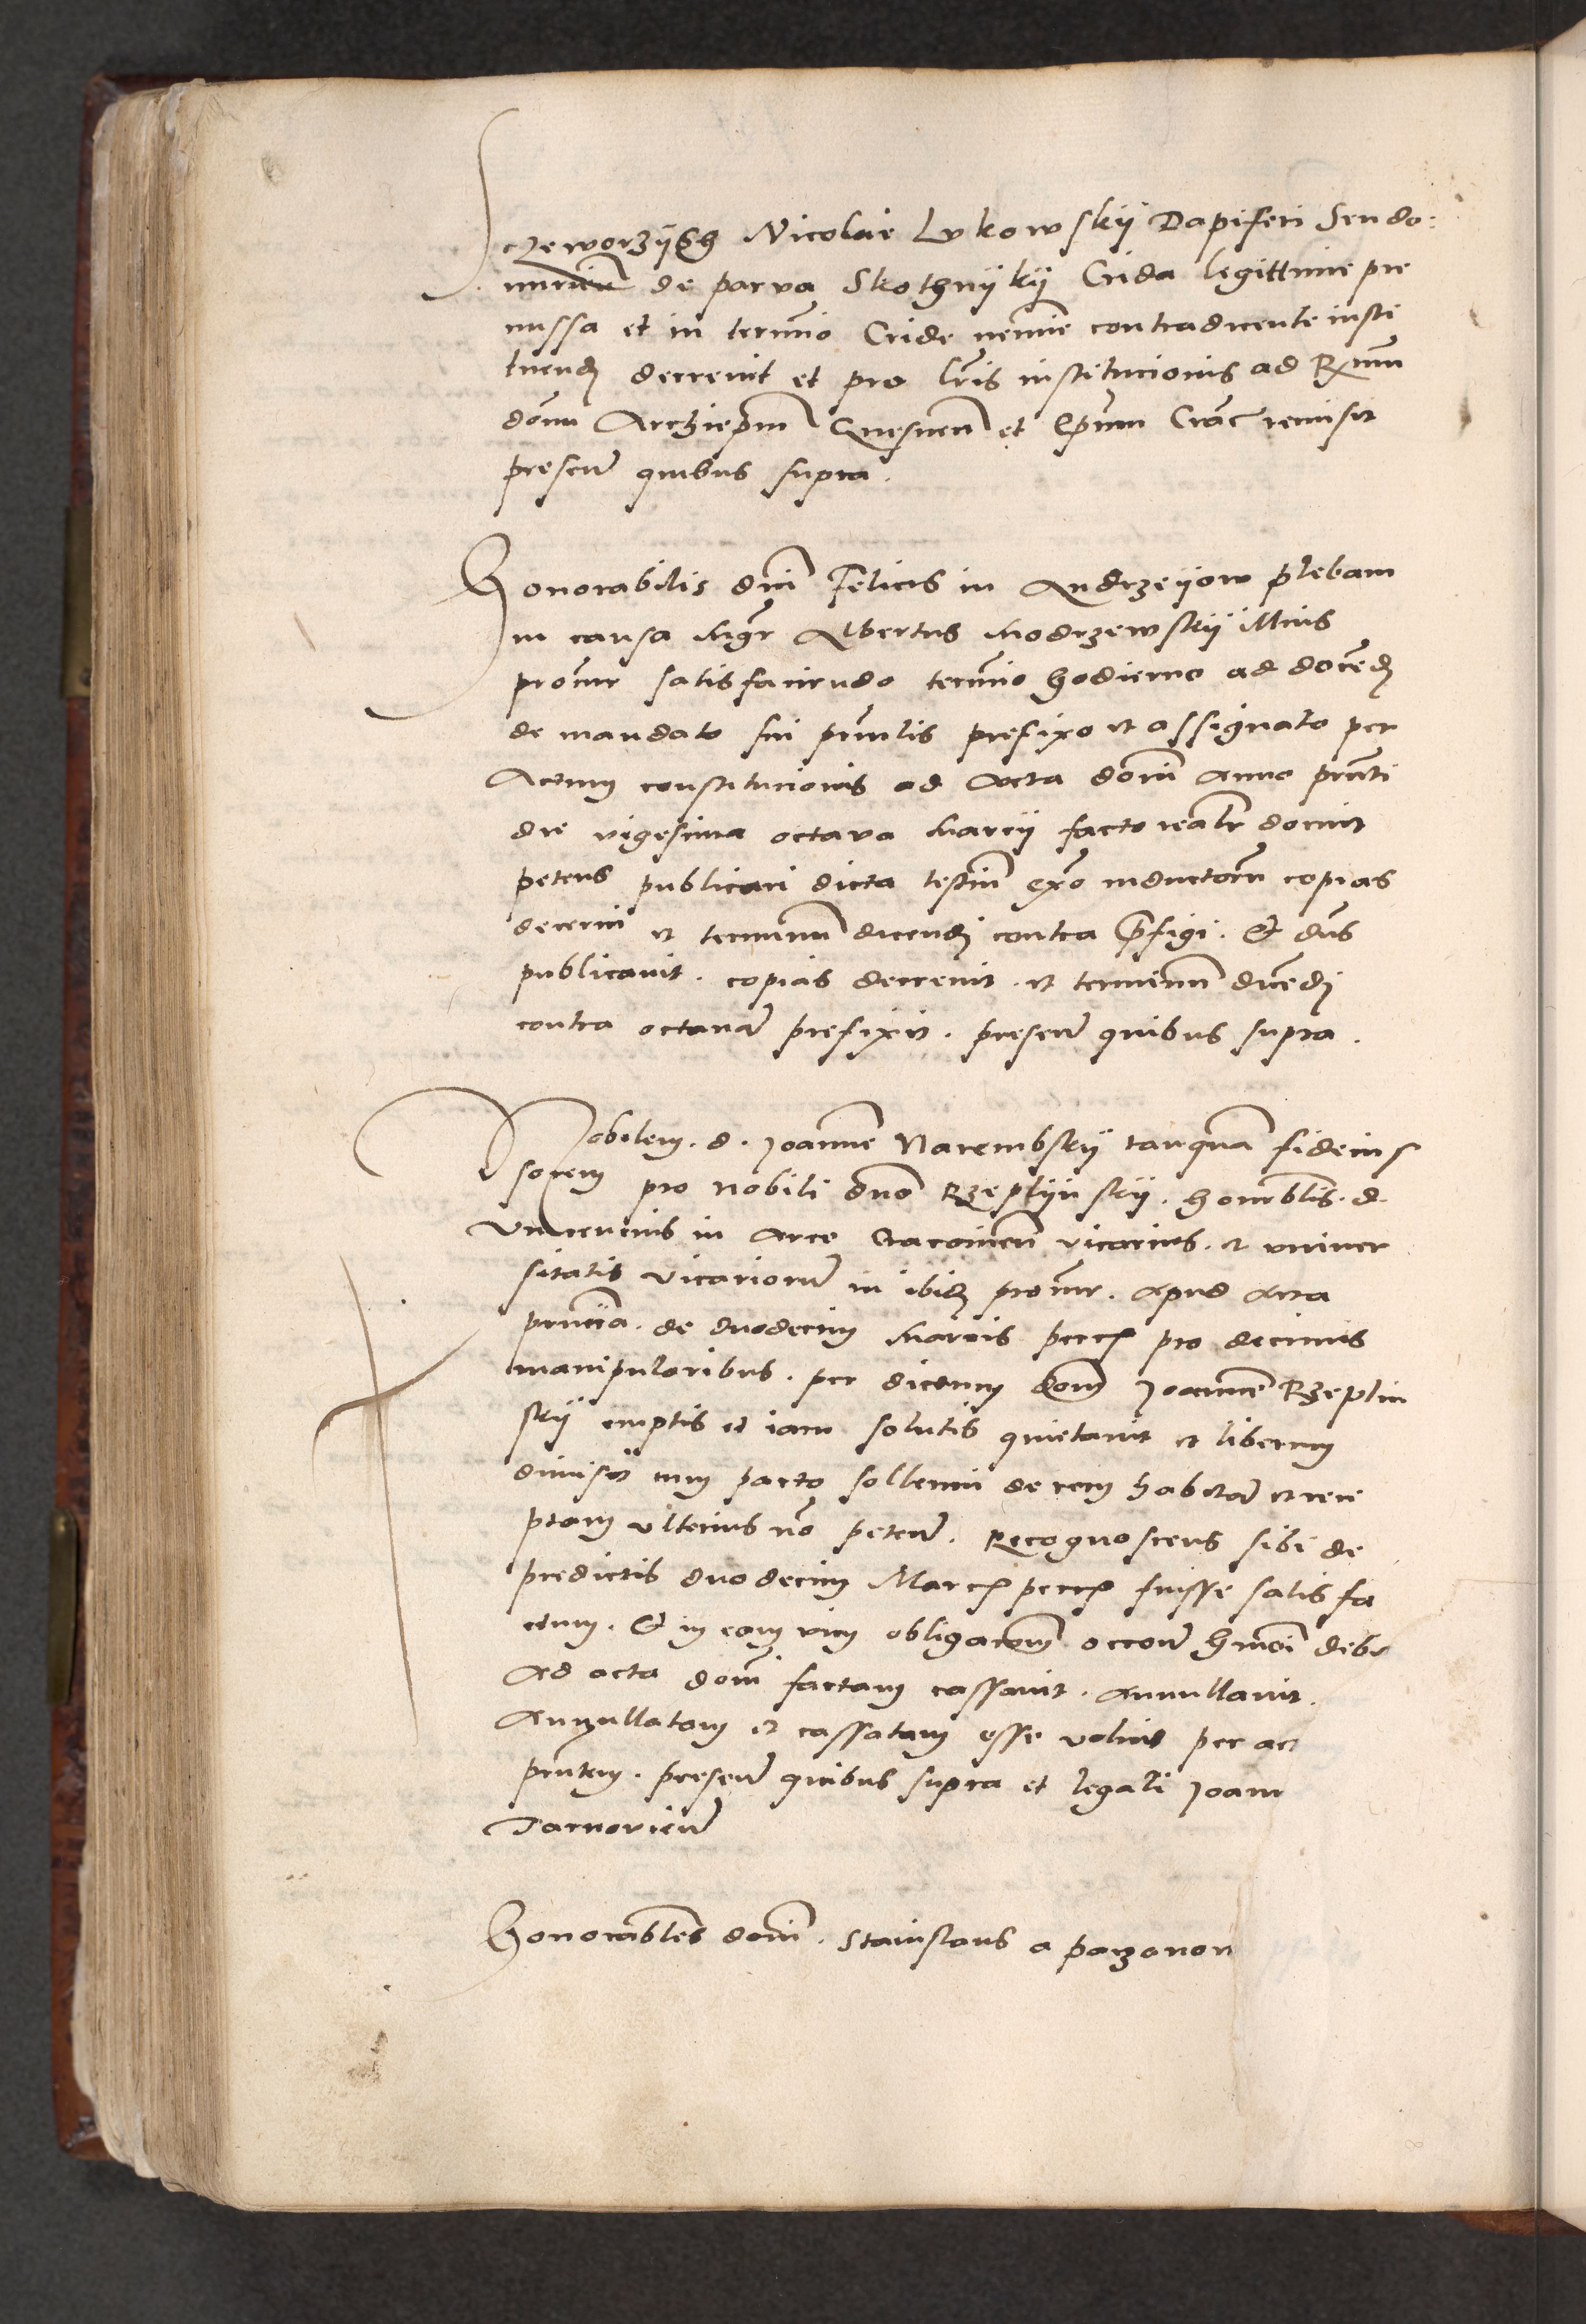 Jeworzysh Nicolai Lvkowskÿ Dapiferi Sendo:
mirien de parva Skothnÿkÿ Crida legittime pre
missa et in termino Cride nemine contradicente insti
tuend decrevit et pro lris institucionis ad Rmum
dom Archiepm Gnesnen et Epum Crac remisit
presen quibus supra.
Honorabilis dni Felicis in Andrzeÿow plebani
in causa Mgr Albertus Modrzewskÿ illius
procur satisfaciendo termino hodierno ad docend
de mandato sui principlis prefixo et assignato per
Actum constitucionis ad Acta domi anno prnti
die vigesima octava Marcÿ facto realr docuit
petens publicari dicta testium ex inductorum copias
decerni et terminum dicendi contra prefigi. Et dns
publicavit. copias decrevit. et terminum dicedi
contra octavam prefixit. presen quibus supra.
Nobilem. d. Joannem Narembskÿ tanquam fideius
sorem pro Nobili dno Rzeplÿnskÿ. honorblis. d.
Vincencius in Arce Cracovien vicarius. et univer
sitatis vicariorum in ibid procur. Apud Acta
prncia. de duodecim Marcis pecc pro decimis
manipularibus. per dictum dom Joannem Rzeplin
skÿ emptis et iam solutis quietavit et liberum
dimisit cum pacto sollenni de rem habitam et rece
ptam ulterius no peten. Recognoscens sibi de
predictis duodecim Marc pecc fuisse satisfa
ctum. Et in eam vim obligacom occon hmoi debi
Ad acta domi factam cassavit. Annullavit.
Annullatam et cassatam esse voluit per act
prntem. presen quibus supra et legali Joann
Tarnovien
Honorabiles domi. Stanislaus a paczanow